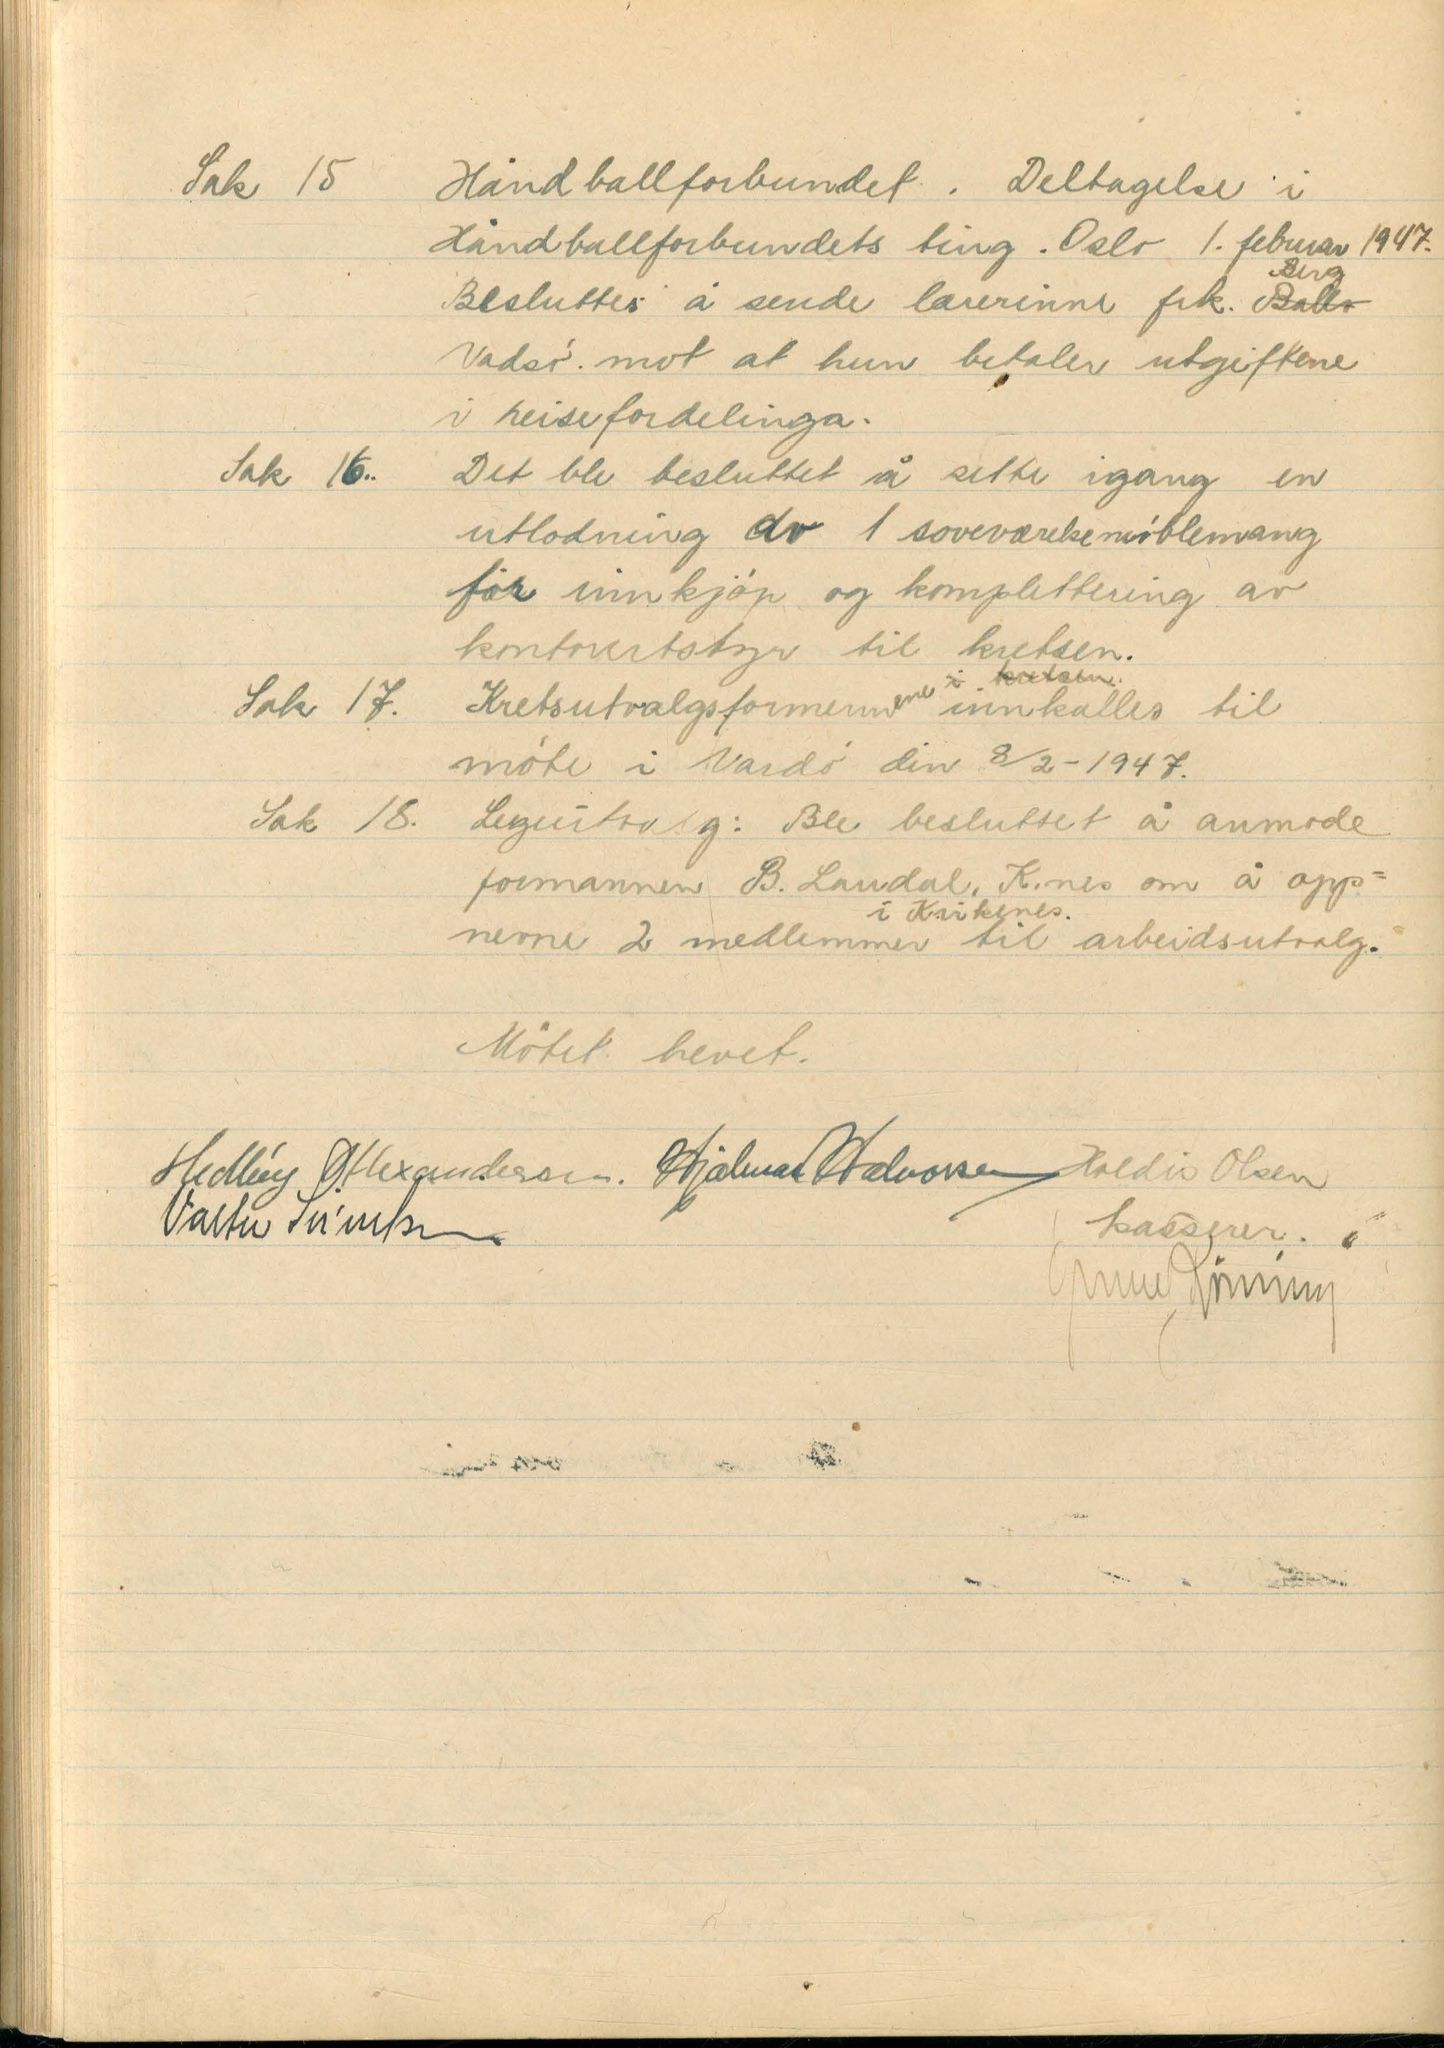 Sak 15 Håndballforbundet. Deltagelse i
Håndballforbundets ting. Oslo 1. februar 1947.
Berg
Besluttes å sende lærerinne frk.
Vadsö. mot at hun betaler utgiftene
i reisefordelinga.
Sak 16.. Det ble besluttet å sette igang en
utlodning av 1 soveværelsemöblemang
for innkjöp og komplettering av
kontorutstyr til kretsen.
ene i kretsen.
Sak 17. Kretsutvalgsformenn innkalles til
möte i Vardö den 8/2-1947.
Sak 18. Legeutvalg: Ble besluttet å anmode
formannen B. Laudal, K.nes om å opp=
i Kirkenes.
nevne 2 medlemmer til arbeidsutvalg.
Mötet hevet.
Hedley Ø. Alexandersen. Hjalmar Halvorsen Haldis Olsen
kasserer.